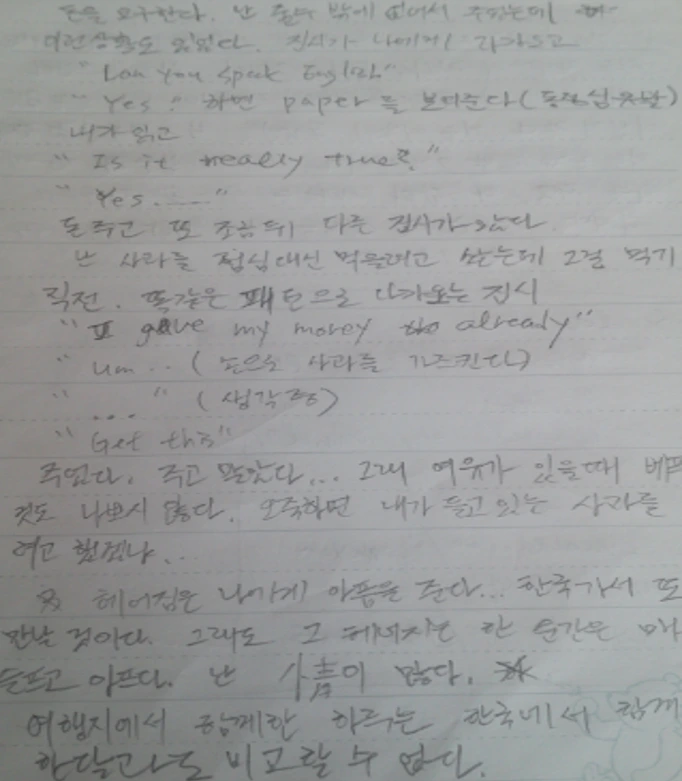 돈을 요구한다. 난 줄수 밖에 없어서 주었는데
이런상황도 있었다. 집시가 나에게 다가오고
"Can you speak English"
"Yes." 하면 paper를 보여준다(동전 넣
내가 읽고
"Is it really true?"
"Yes......"
돈주고 또 조금뒤 다른 집시가 왔다
난 사과를 점심대신 먹을려고 샀는데 그걸 먹기
직전. 똑같은 패턴으로 다가오는 집시
"I gave my money already"
"um.. (손으로 사과를 가르킨다)
"..." (생각중)
"Get this"
주었다. 주고 말았다... 그래 여유가 있을때 베푸
것도 나쁘지 않다. 오죽하면 내가 들고 있는 사과를
여고 했겠냐..
헤어짐은 나에게 아픔을 준다... 한국가서 또
만날 것이다. 그래도 그 헤어지는 한 순간은 매
슬프고 아프다. 난 많다.
여행지에서 함께한 하루는 한국에서 함께
한달과도 비교할 수 없다.